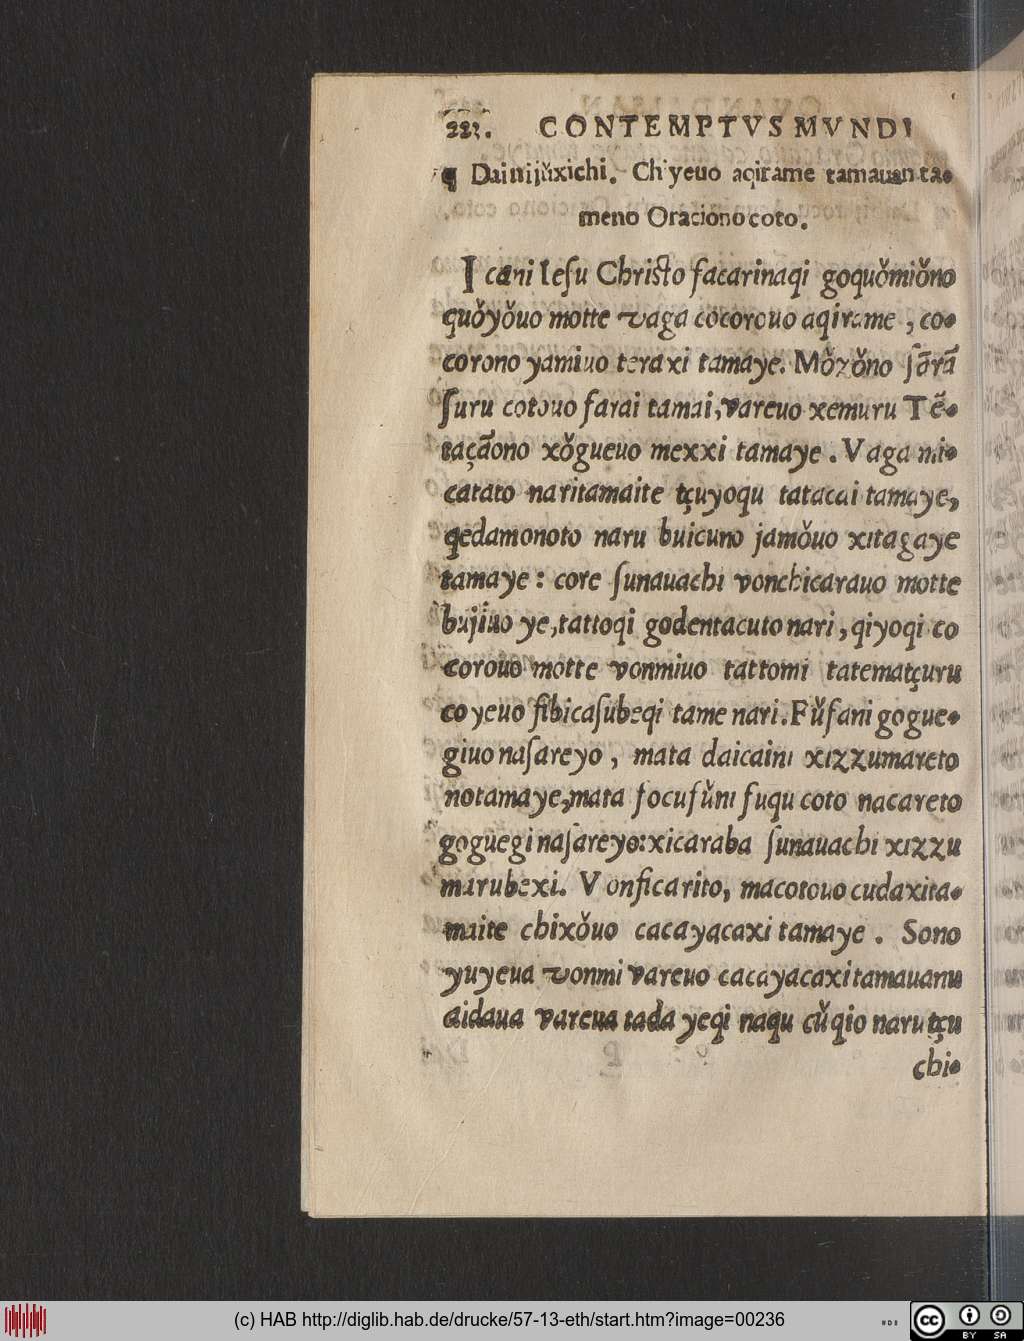 221. CONTEMPTVS MVNDI
¶ Dai nijŭxichi. Chiyeuo aqirame tamauan ta-
meno Oraciono coto.
Icani Ieſu Chriſto facarinaqi goquŏmiŏno
quŏyŏuo motte vaga cocorouo aqirame, co-
corono yamiuo teraxi tamaye. Mŏzŏno ſõrã
ſuru cotouo farai tamai, vareuo xemuru Tẽ-
taçãono xŏgueuo mexxi tamaye. Vaga mi-
catato naritamaite tçuyoqu tatacai tamaye,
qedamonoto naru buicuno jamŏuo xitagaye
tamaye: core ſunauachi vonchicarauo motte
bujiuo ye, tattoqi godentacuto nari, qiyoqi co
corouo motte vonmiuo tattomi tatematçuru
coyeuo fibicaſubeqi tame nari. Fŭfani gogue-
giuo naſareyo, mata daicaini xizzumareto
notamaye, mata focufŭni fuqu coto nacareto
goguegi naſareyo: xicaraba ſunauachi xizzu
marubexi. Vonficarito, macotouo cudaxita-
maite chixŏuo cacayacaxi tamaye. Sono
yuyeua vonmi vareuo cacayacaxi tamauanu
aidaua vareua tada yeqi naqu cŭqio naru tçu
chi-
(c) HAB http://diglib.hab.de/drucke/57-13-eth/start.htm?image=00236
cc BY SA